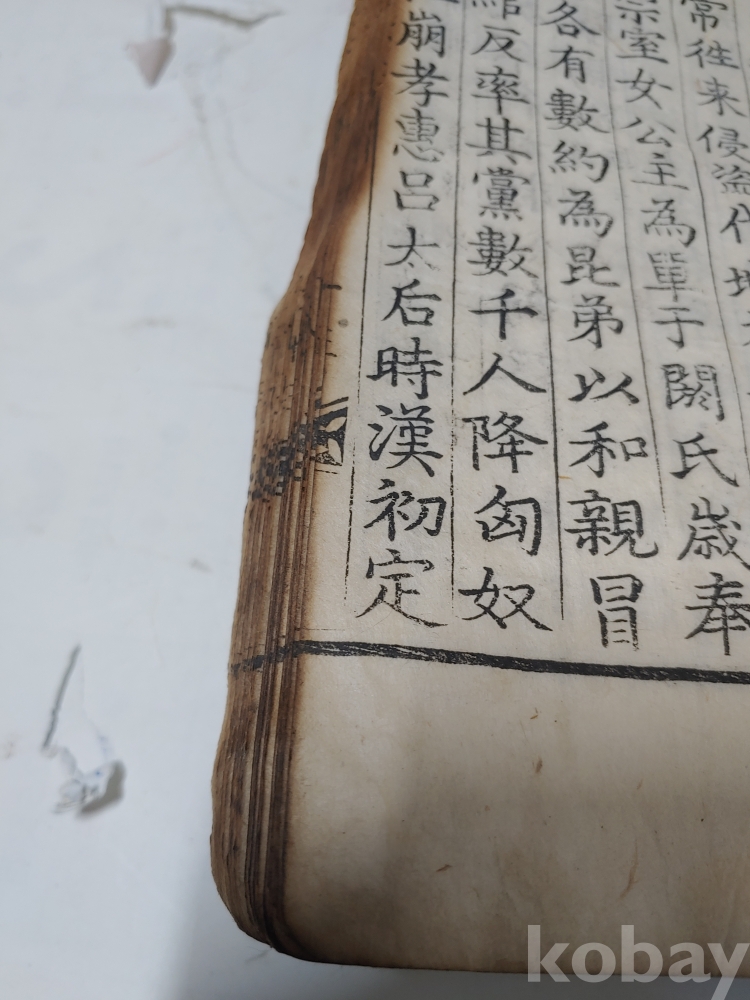 常徃来侵盗代地
宗室女公主為單于閼氏歳奉
各有數約為昆弟以和親冒
綰反率其黨數千人降匈奴
崩孝惠吕太后時漢初定
kobay